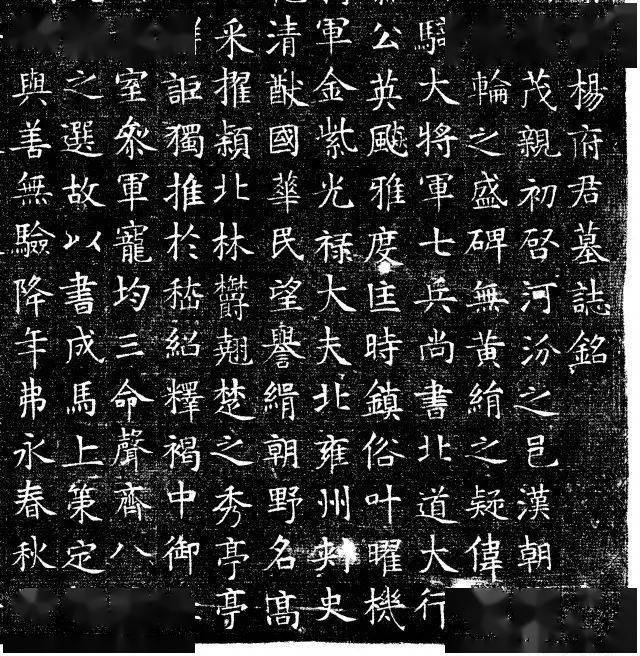 楊府君墓誌銘
茂親初啓河汾之邑漢朝
輪之盛碑無黃絹之疑偉
驃大將軍七兵尚書北道大行
公英飈雅度匡時鎮俗叶曜機
軍金紫光祿大夫北雍州刺史
清猷國華民望譽緝朝野名高
采擢穎北林欝翹楚之秀亭亭
詎獨推於嵇紹釋褐中御
室叅軍寵均三命聲齊八
之選故以書成馬上策定
與善無驗降年弗永春秋